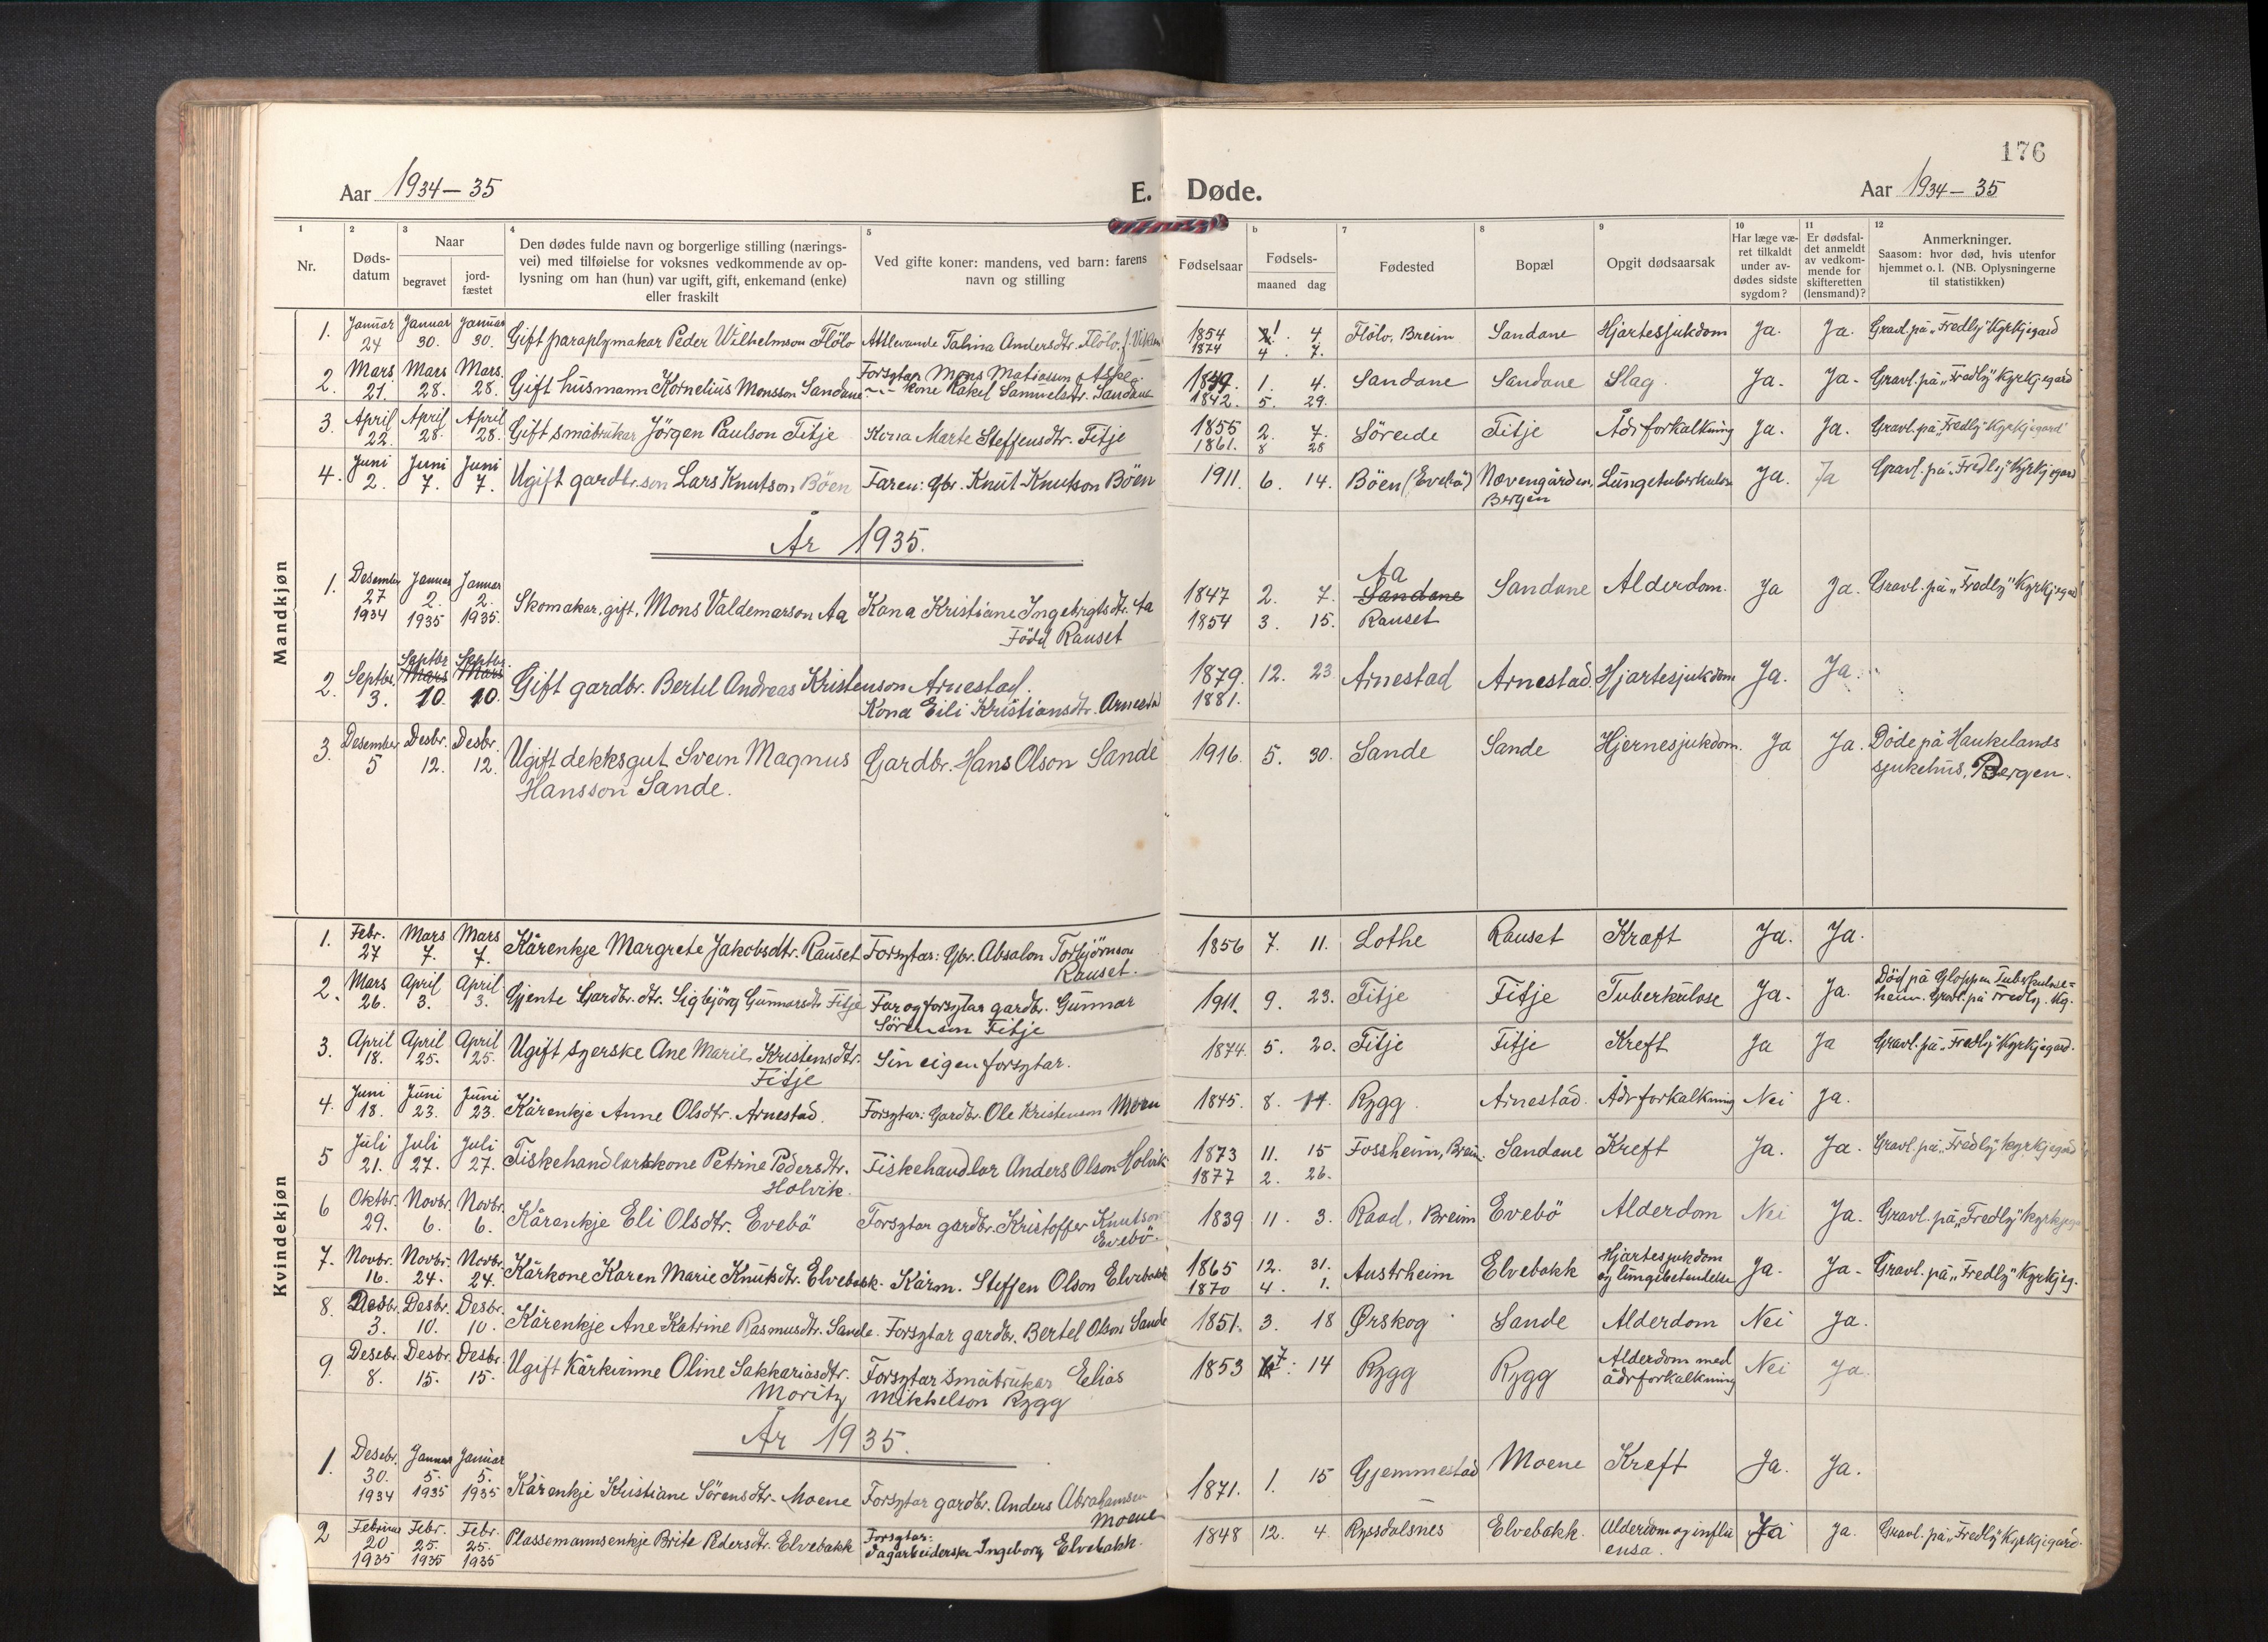 176
Aar 1934-35
E. Døde.
Aar 1934-35
1 2 3 4 5 6 7 8 9 10 11 12
Nr.
Døds-
datum
Naar
begravet
jord-
fæstet
Den dødes fulde navn og borgerlige stilling (nærings-
vei) med tilføielse for voksnes vedkommende av op-
lysning om han (hun) var ugift, gift, enkemand (enke)
eller fraskilt
Ved gifte koner: mandens, ved barn: farens
navn og stilling
Fødselsaar
Fødsels-
maaned dag
Fødested
Bopæl
Opgit dødsaarsak
Har læge væ-
ret tilkaldt
under av-
dødes sidste
sygdom?
Er dødsfal-
det anmeldt
av vedkom-
mende for
skifteretten
(lensmand)?
Anmerkninger.
Saasom: hvor død, hvis utenfor
hjemmet o. l. (NB. Oplysningerne
til statistikken)
Mandkjøn
1. Januar 24 Januar 30. Januar 30. Gift paraplymakar Peder Wilhelmson Flölo Attlevande Talina Andersdtr. Flölo, f. Viksen 1854 1 4 Flölo, Breim Sandane Hjartesjukdom Ja. Ja. Gravl. på "Fredly" Kyrkjegard
1874 4. 7.
2. Mars 21. Mars 28. Mars 28. Gift husmann Kornelius Monsson Sandane Forsytar Mons Matiassen 1849. 1. 4. Sandane Sandane Slag. Ja. Ja. Gravl. på "Fredly" Kyrkjegard
kone Rakel Samuelsdtr. Sandane 1842. 5. 29.
3. April 22. April 28. April 28. Gift småbrukar Jörgen Paulson Fitje Kona Marte Steffensdtr. Fitje 1855 2. 7. Söreide Fitje Ådrforkalkning Ja. Ja. Gravl. på "Fredly" Kyrkjegard
1861. 8 28
4. Juni 2. Juni 7. Juni 7. Ugift gardbr. son Lars Knutson Böen Faren: Gbr. Knut Knutson Böen 1911. 6. 14. Böen (Evebö) Nævengården, Bergen Lungetuberkulose Ja. Ja Gravl. på "Fredly" Kyrkjegard
År 1935.
1. Desember 27 1934 Januar 2. 1935 Januar 2. 1935. Skomakar, gift, Mons Valdemarson Aa Kona Kristiane Ingebrigtsdtr. Aa 1847 2. 7. Aa Sandane Sandane Alderdom. Ja Ja. Gravl. på "Fredly" Kyrkjegard
Född Rauset 1854 3. 15. Rauset
2. Septbr. 3. Septbr. Mars 10. Septbr. Mars 10. Gift gardbr. Bertel Andreas Kristenson Arnestad. 1879. 12. 23 Arnestad Arnestad. Hjartesjukdom Ja. Ja.
Kona Eili Kristiansdtr. Arnestad 1881.
3. Desember 5 Desbr. 12. Desbr. 12. Ugift dekksgut Svein Magnus Gardbr. Hans Olson Sande 1916. 5. 30. Sande Sande Hjernesjukdom. Ja Ja. Döde på Haukelands
Hansson Sande. sjukehus, Bergen.
Kvindekjøn
1. Febr. 27 Mars 7. Mars 7. Kårenkje Margrete Jakobsdtr. Rauset Forsytar: Gbr. Absalon Torbjörnson 1856 7. 11. Lothe Rauset Kræft Ja. Ja.
Rauset.
2. Mars 26. April 3. April 3. Gjente Gardbr. dtr. Sigbjörg Gunnarsdtr Fitje Far og forsytar gardbr. Gunnar 1911. 9. 23. Fitje Fitje Tuberkulose Ja. Ja. Död på Gloppen Tuberkulose-
Sörenson Fitje heim. Gravl. på Fredly. Kg.
3. April 18. April 25. April 25. Ugift syerske Ane Marie Kristensdtr. Sin eigen forsytar. 1874. 5. 20. Fitje Fitje Kreft Ja Ja Gravl. på "Fredly" Kyrkjegard.
Fitje
4. Juni 18. Juni 23. Juni 23. Kårenkje Anne Olsdtr. Arnestad. Forsytar: Gardbr. Ole Kristenson Moen 1845. 8. 14. Rygg. Arnestad. Ådrforkalkning Nei Ja.
5 Juli 21. Juli 27. Juli 27. Fiskehandlarkone Petrine Pedersdtr. Fiskehandlar Anders Olson Holvik 1873 11. 15 Fossheim, Breim. Sandane Kreft Ja. Ja. Gravl. på "Fredly" Kyrkjegard
Holvik. 1877 2. 26.
6 Oktbr. 29. Novbr. 6. Novbr. 6. Kårenkje Eli Olsdtr. Evebö Forsytar gardbr. Kristoffer Knutson 1839 11. 3. Raad, Breim Evebö Alderdom Nei Ja. Gravl. på "Fredly" Kyrkjeg
Evebö.
7. Novbr. 16. Novbr. 24. Novbr. 24. Kårkone Karen Marie Knutsdtr. Elvebakk. Kårm. Steffen Olson Elvebakk 1865 12. 31. Austrheim Elvebakk Hjartesjukdom og lungebetendelse Ja. Ja. Gravl. på "Fredly" Kyrkjeg.
1870 4. 1.
8. Desbr. 3. Desbr. 10. Desbr. 10. Kårenkje Ane Katrine Rasmusdtr. Sande. Forsytar gardbr. Bertel Olson Sande 1851. 3. 18 Ørskog Sande Alderdom Nei Ja.
9. Desebr. 8. Desbr. 15. Desbr. 15. Ugift Kårkvinne Oline Sakkariasdtr. Forsytar småbrukar Elias 1853 7. 14 Rygg Rygg Alderdom med ådrforkalkning Nei Ja.
Moritz Mikkelson Rygg
År 1935.
1. Desebr. 30. 1934 Januar 5. 1935 Januar 5. 1935 Kårenkje Kristiane Sörensdtr. Moene Forsytar gardbr. Anders Abrahamsen 1871. 1. 15 Gjemmestad Moene Kreft Ja. Ja.
Moene
2 Februar 20 1935 Febr. 25. 1935 Febr. 25. 1935 Plassemannsenkje Brite Pedersdtr. Elvebakk Forsytar: dagarbeiderske Ingeborg Elvebakk. 1848 12. 4. Ryssdalsnes Elvebakk. Alderdom og influensa. Ja Ja. Gravl. på "Fredly" Kyrkjegard.